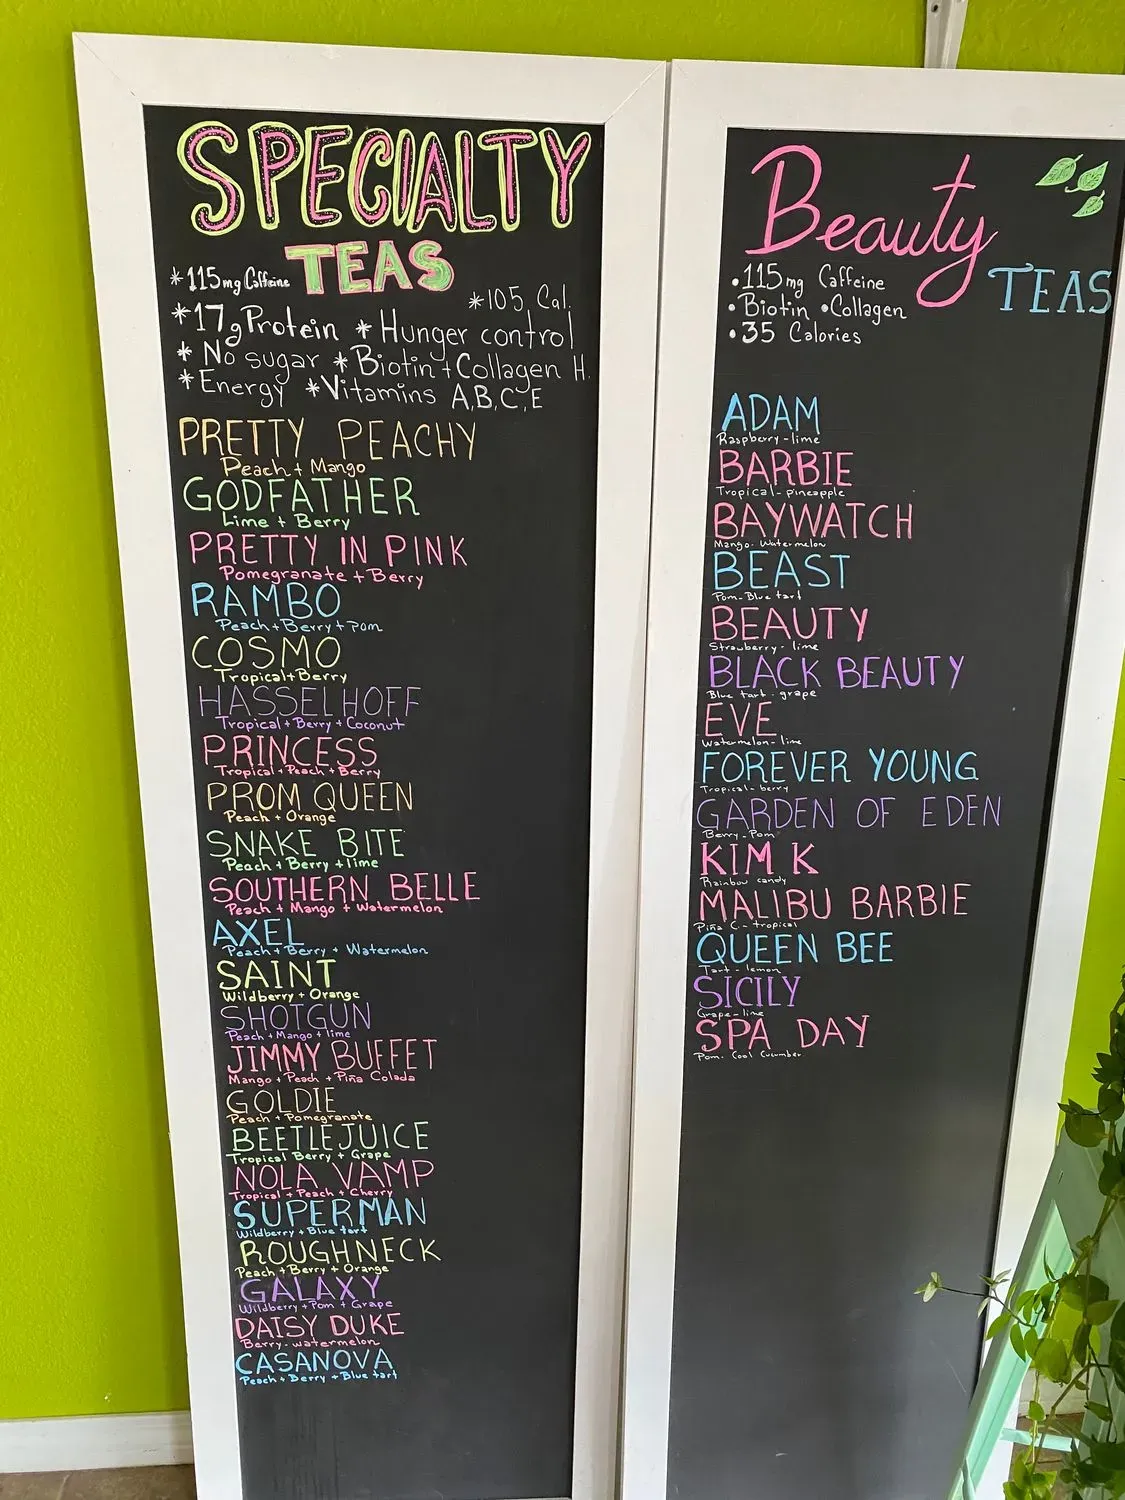 SPECIALTY
TEAS
*115mg Caffeine
*105 Cal.
*17g Protein *Hunger control
*No sugar *Biotin+Collagen H.
*Energy *Vitamins A,B,C,E
PRETTY PEACHY
Peach + Mango
GODFATHER
Lime + Berry
PRETTY IN PINK
Pomegranate + Berry
RAMBO
Peach + Berry + pom
COSMO
Tropical + Berry
HASSELHOFF
Tropical + Berry + Coconut
PRINCESS
Tropical + Peach + Berry
PROM QUEEN
Peach + Orange
SNAKE BITE
Peach + Berry + lime
SOUTHERN BELLE
Peach + Mango + Watermelon
AXEL
Peach + Berry + Watermelon
SAINT
Wildberry + Orange
SHOTGUN
Peach + Mango + lime
JIMMY BUFFET
Mango + Peach + Piña Colada
GOLDIE
Peach + Pomegranate
BEETLEJUICE
Tropical Berry + Grape
NOLA VAMP
Tropical + Peach + Cherry
SUPERMAN
Wildberry + Blue tart
ROUGHNECK
Peach + Berry + Orange
GALAXY
Wildberry + Pom + Grape
DAISY DUKE
Berry - watermelon
CASANOVA
Peach + Berry + Blue tart
Beauty
TEAS
•115mg Caffeine
•Biotin •Collagen
•35 Calories
ADAM
Raspberry - lime
BARBIE
Tropical - pineapple
BAYWATCH
Mango - Watermelon
BEAST
Pom - Blue tart
BEAUTY
Strawberry - lime
BLACK BEAUTY
Blue tart - grape
EVE
Watermelon - lime
FOREVER YOUNG
Tropical - berry
GARDEN OF EDEN
Berry - Pom
KIM K
Rainbow candy
MALIBU BARBIE
Piña C. - tropical
QUEEN BEE
Tart - lemon
SICILY
Grape - lime
SPA DAY
Pom. Cool Cucumber